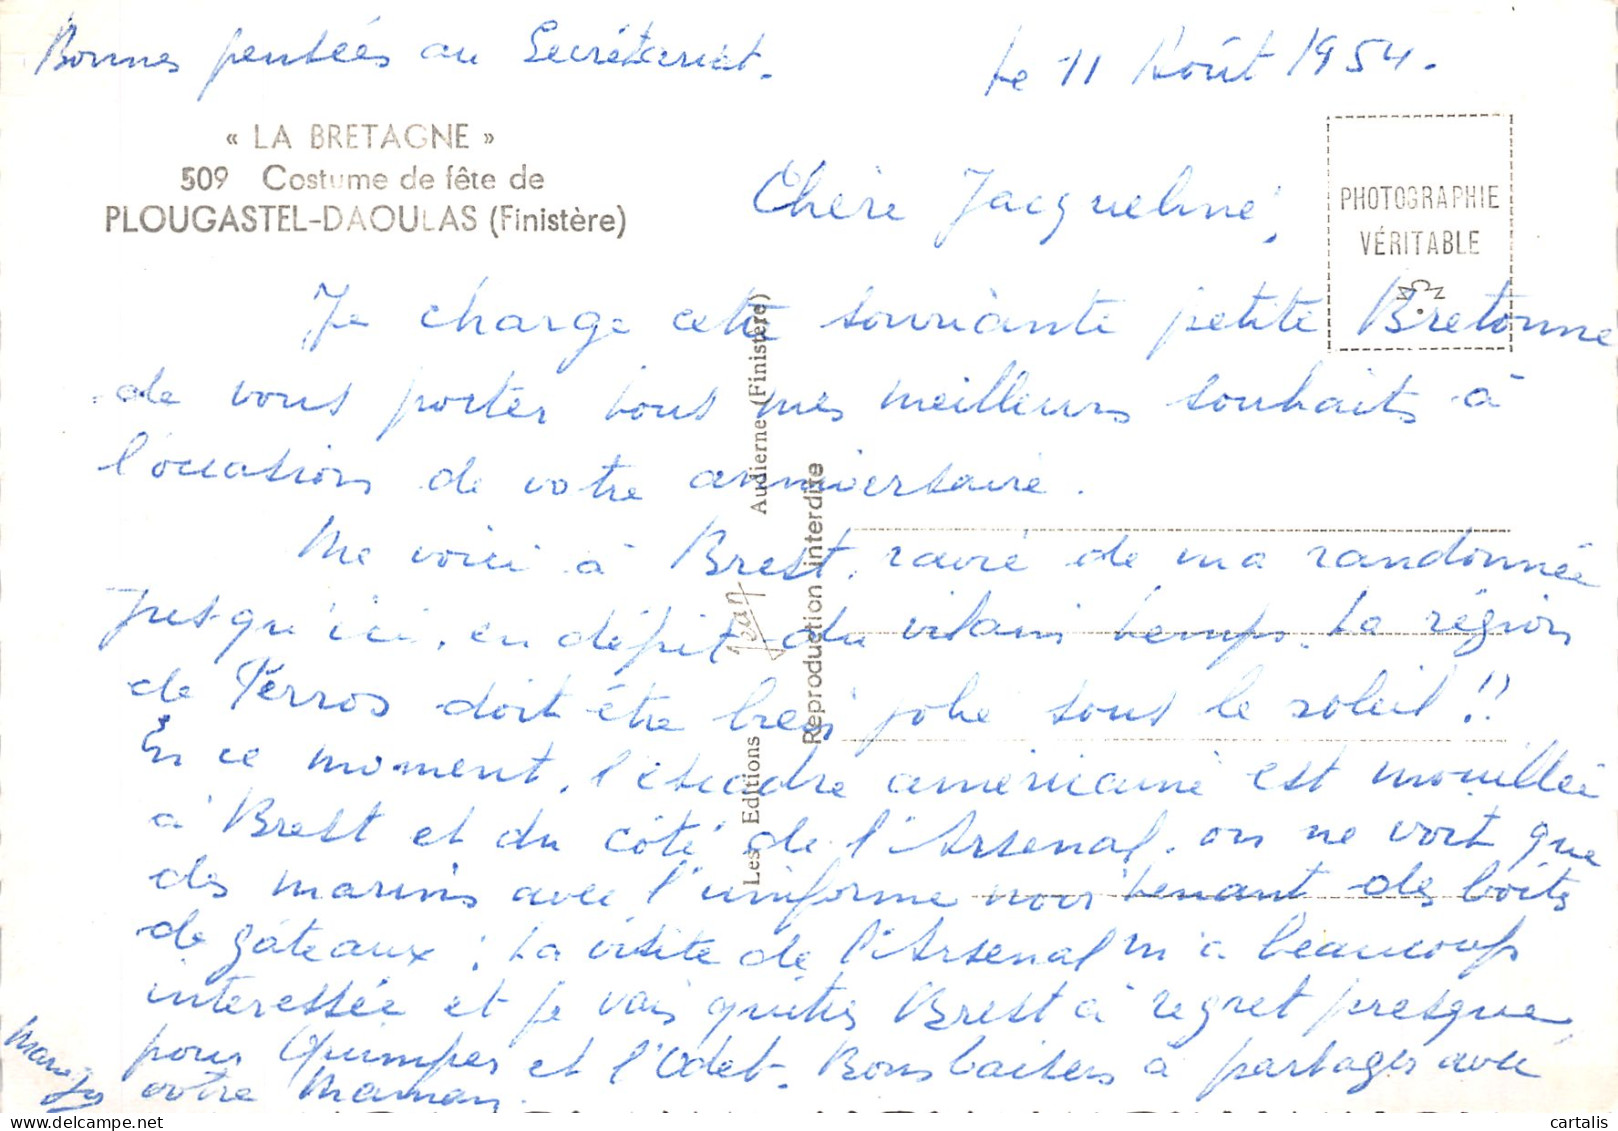 Bonnes pensées au Secrétariat.
Le 11 Août 1954.
« LA BRETAGNE »
509 Costume de fête de
PLOUGASTEL-DAOULAS (Finistère)
PHOTOGRAPHIE
VÉRITABLE
Chère Jacqueline,
Je charge cette souriante petite Bretonne
de vous porter tous mes meilleurs souhaits à
l'occasion de votre anniversaire.
Me voici à Brest, ravie de ma randonnée
jusqu'ici, en dépit du vilain temps. La région
de Perros doit être bien jolie sous le soleil !!
En ce moment, l'escadre américaine est mouillée
à Brest et du côté de l'Arsenal, on ne voit que
des marins avec l'uniforme noir tenant des boîtes
de gâteaux ; La visite de l'Arsenal m'a beaucoup
intéressée et je vais quitter Brest à regret presque,
pour Quimper et l'Odet. Bons baisers à partager avec
votre Maman.
Les Editions Jean Audierne (Finistère)
Reproduction interdite